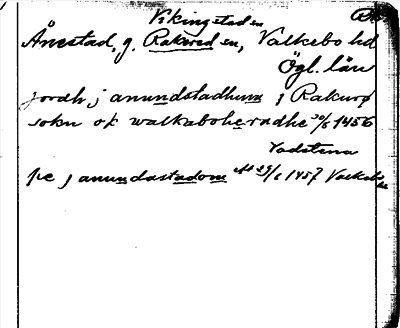 Vikingstad sn
Ånestad, g. Rakered sn, Valkebo hd
Ögl. län
jordh j anundstadhum j Rakurø
sokn ok walkaboheradhe 30/6 1456
Vadstena
pe j anundastadom 29/6 1457 Valkebo